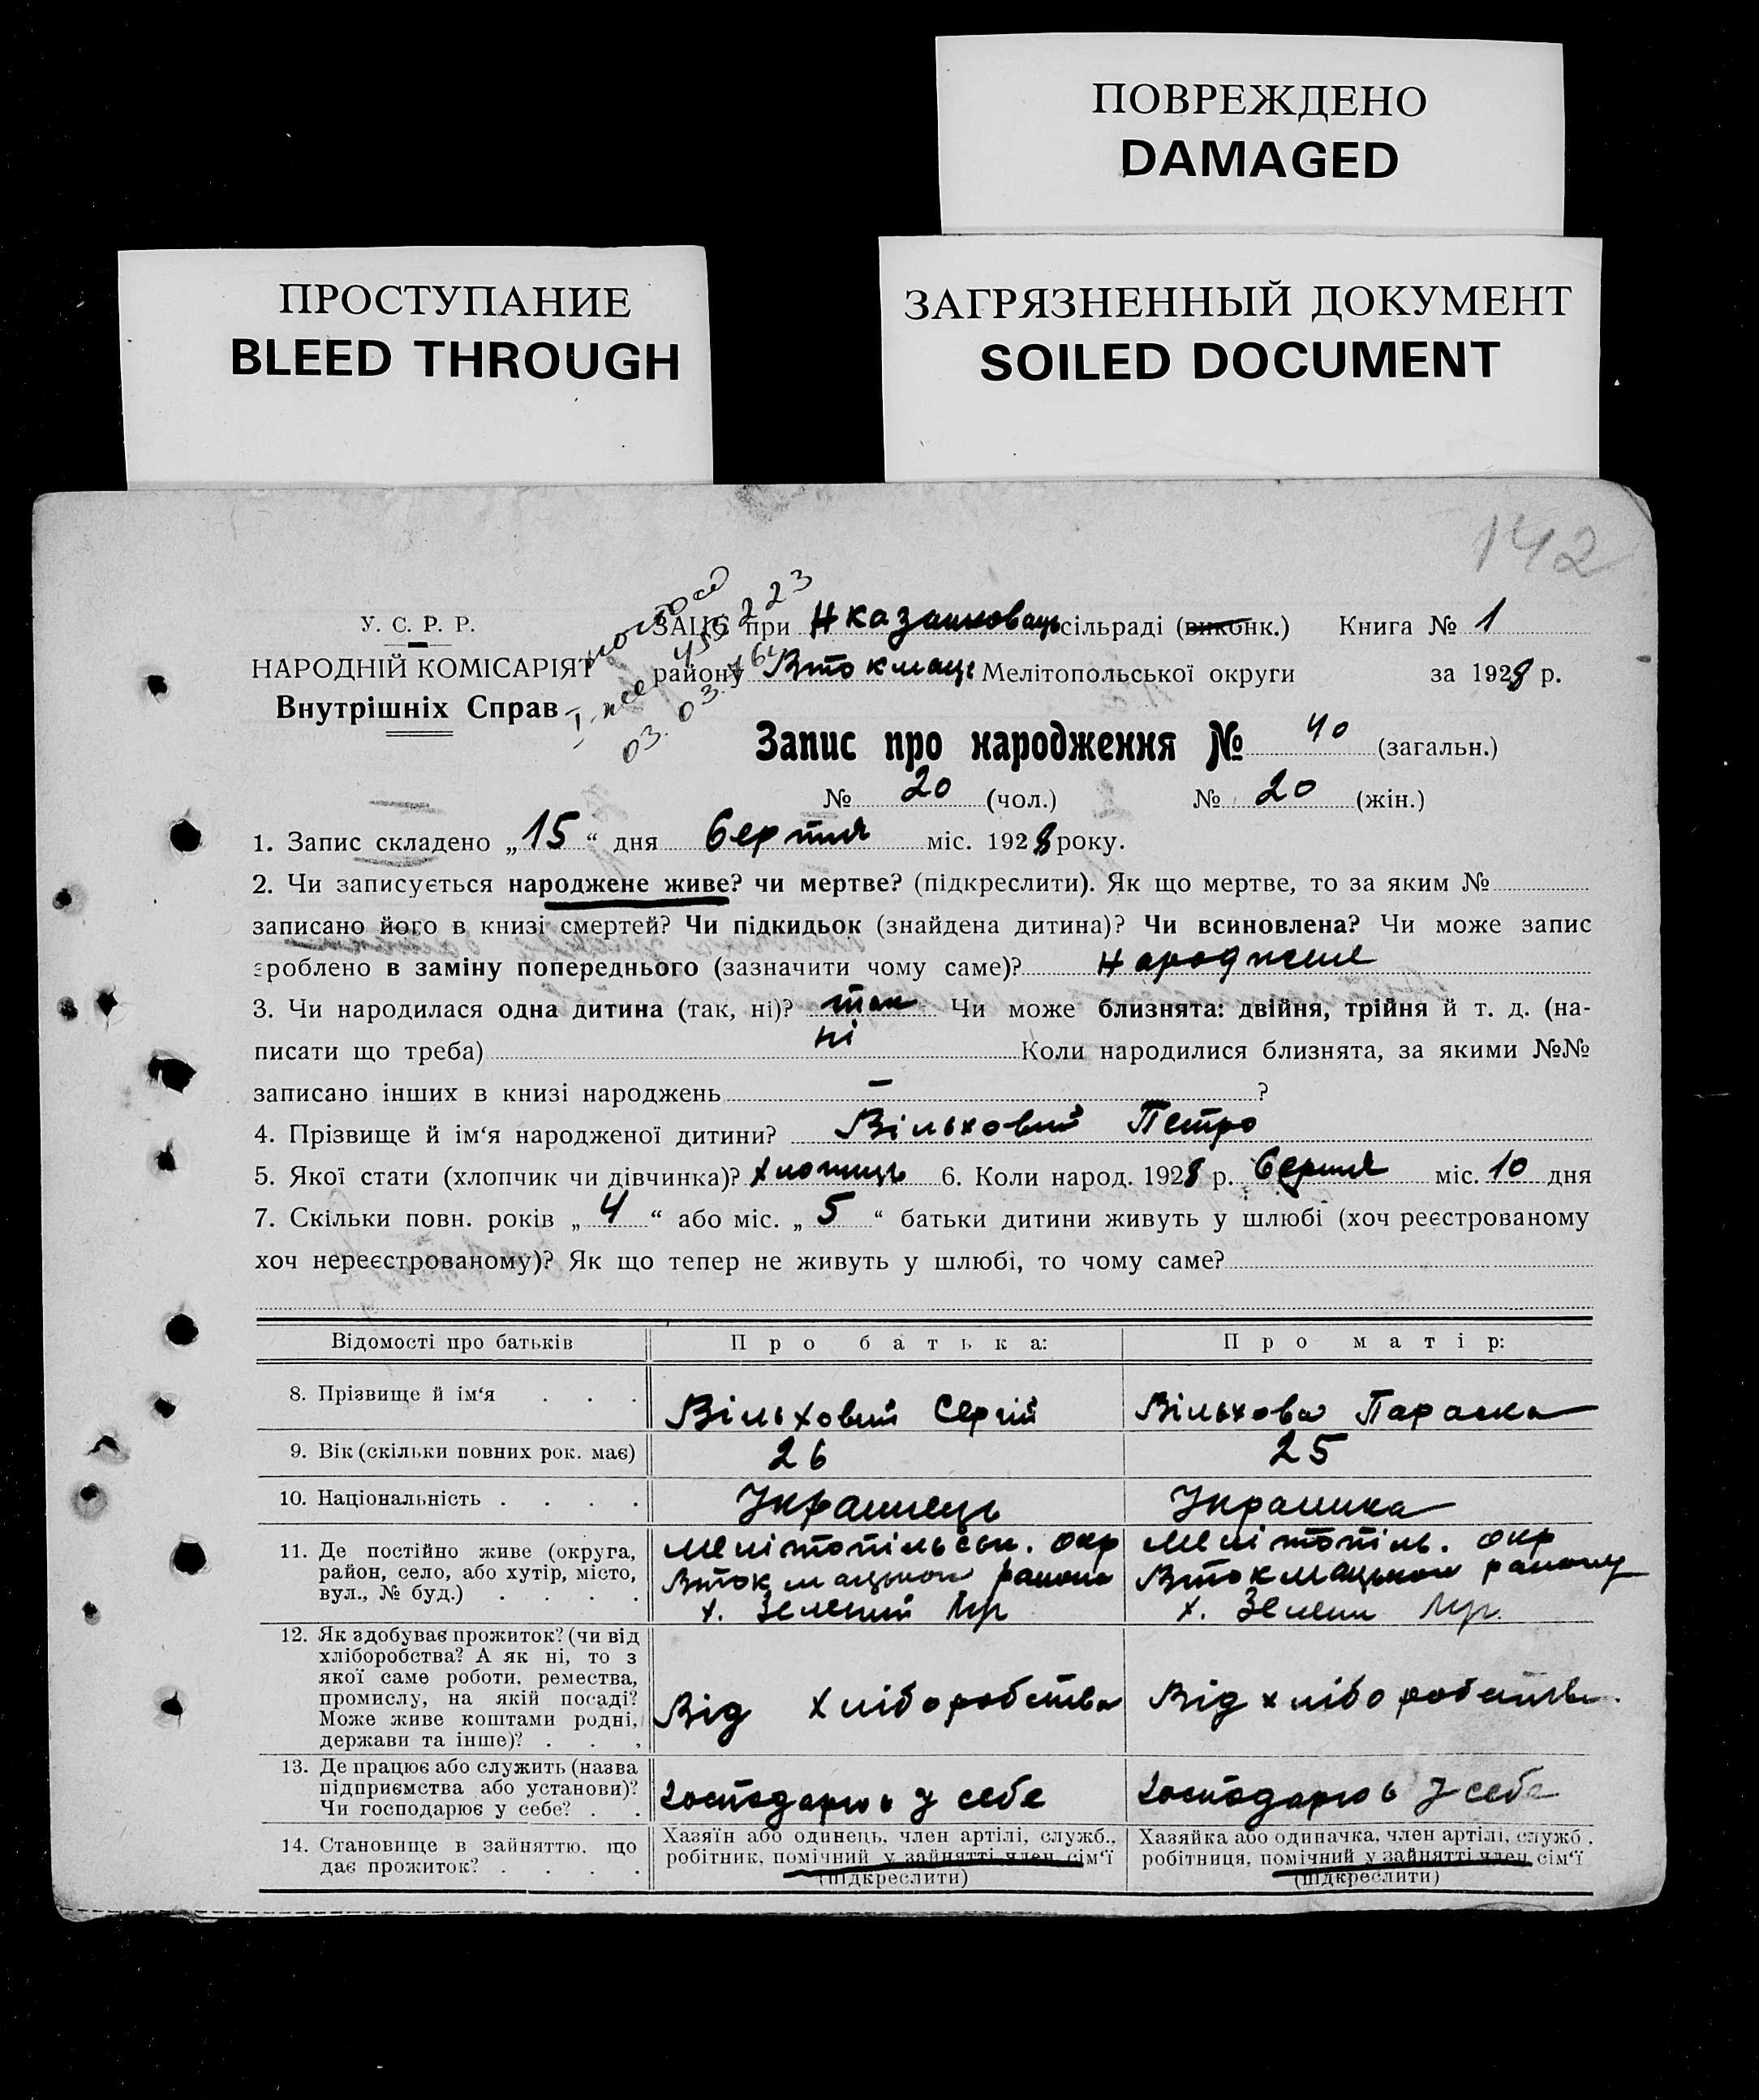 ПОВРЕЖДЕНО
DAMAGED
ПРОСТУПАНИЕ
BLEED THROUGH
ЗАГРЯЗНЕННЫЙ ДОКУМЕНТ
SOILED DOCUMENT
142
У. С. Р. Р.
НАРОДНІЙ КОМІСАРІЯТ
Внутрішніх Справ
ЗАЦС при сільраді (виконк.) Книга № 1
району Втокмаць Мелітопольської округи за 1928 р.
03. 03. 64
Запис про народження № 40 (загальн.)
№ 20 (чол.) № 20 (жін.)
1. Запис складено „15“ дня Серпня міс. 1928 року.
2. Чи записується народжене живе? чи мертве? (підкреслити). Як що мертве, то за яким №
записано його в книзі смертей? Чи підкидьок (знайдена дитина)? Чи всиновлена? Чи може запис
зроблено в заміну попереднього (зазначити чому саме)? Народжене
3. Чи народилася одна дитина (так, ні)? так Чи може близнята: двійня, трійня й т. д. (на-
писати що треба) ні Коли народилися близнята, за якими №№
записано інших в книзі народжень — ?
4. Прізвище й ім‘я народженої дитини? Вільховий Петро
5. Якої стати (хлопчик чи дівчинка)? хлопиць 6. Коли народ. 1928 р. Серпня міс. 10 дня
7. Скільки повн. років „4“ або міс. „5“ батьки дитини живуть у шлюбі (хоч реєстрованому
хоч нереєстрованому)? Як що тепер не живуть у шлюбі, то чому саме?
Відомості про батьків Про батька: Про матір:
8. Прізвище й ім‘я . . . Вільховий Сергій Вільхова Параска
9. Вік (скільки повних рок. має) 26 25
10. Національність . . . . Українець Українка
11. Де постійно живе (округа, Мелітопільськ. окр Мелітопіль. окр
район, село, або хутір, місто, Втокмацького району Втокмацького району
вул., № буд.) . . . . х. Зелений Яр х. Зелени Яр.
12. Як здобуває прожиток? (чи від
хліборобства? А як ні, то з
якої саме роботи, ремества,
промислу, на якій посаді? Від хліборобства Від хліборобства.
Може живе коштами родні,
держави та інше)? . . .
13. Де працює або служить (назва
підприємства або установи)? Господарює у себе Господарює у себе
Чи господарює у себе? . .
14. Становище в зайняттю, що Хазяїн або одинець, член артілі, служб., Хазяйка або одиначка, член артілі, служб.,
дає прожиток? . . . . робітник, помічний у зайнятті член сім‘ї робітниця, помічний у зайнятті член сім‘ї
(підкреслити) (підкреслити)